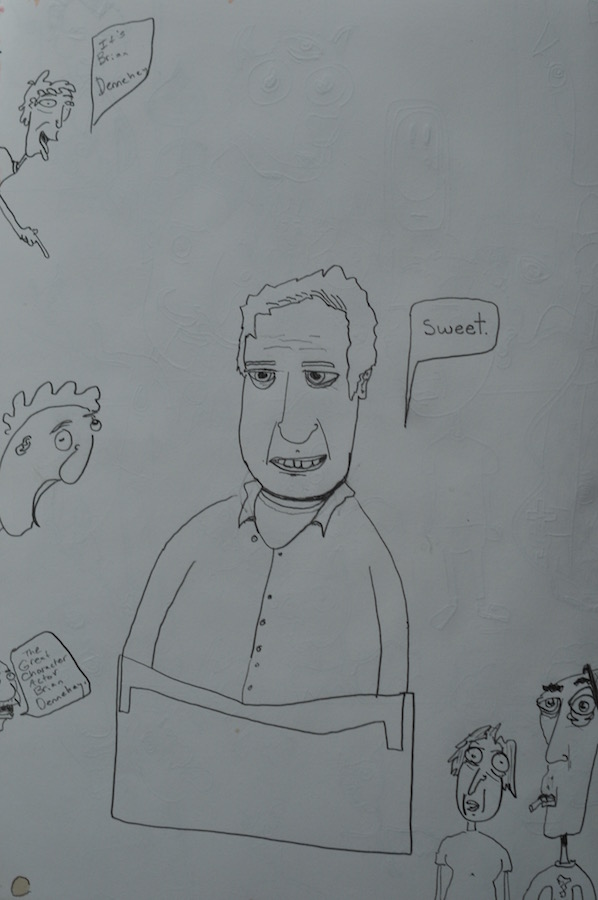 It's
Brian
Dennehey
Sweet.
The
Great
Character
Actor
Brian
Dennehey